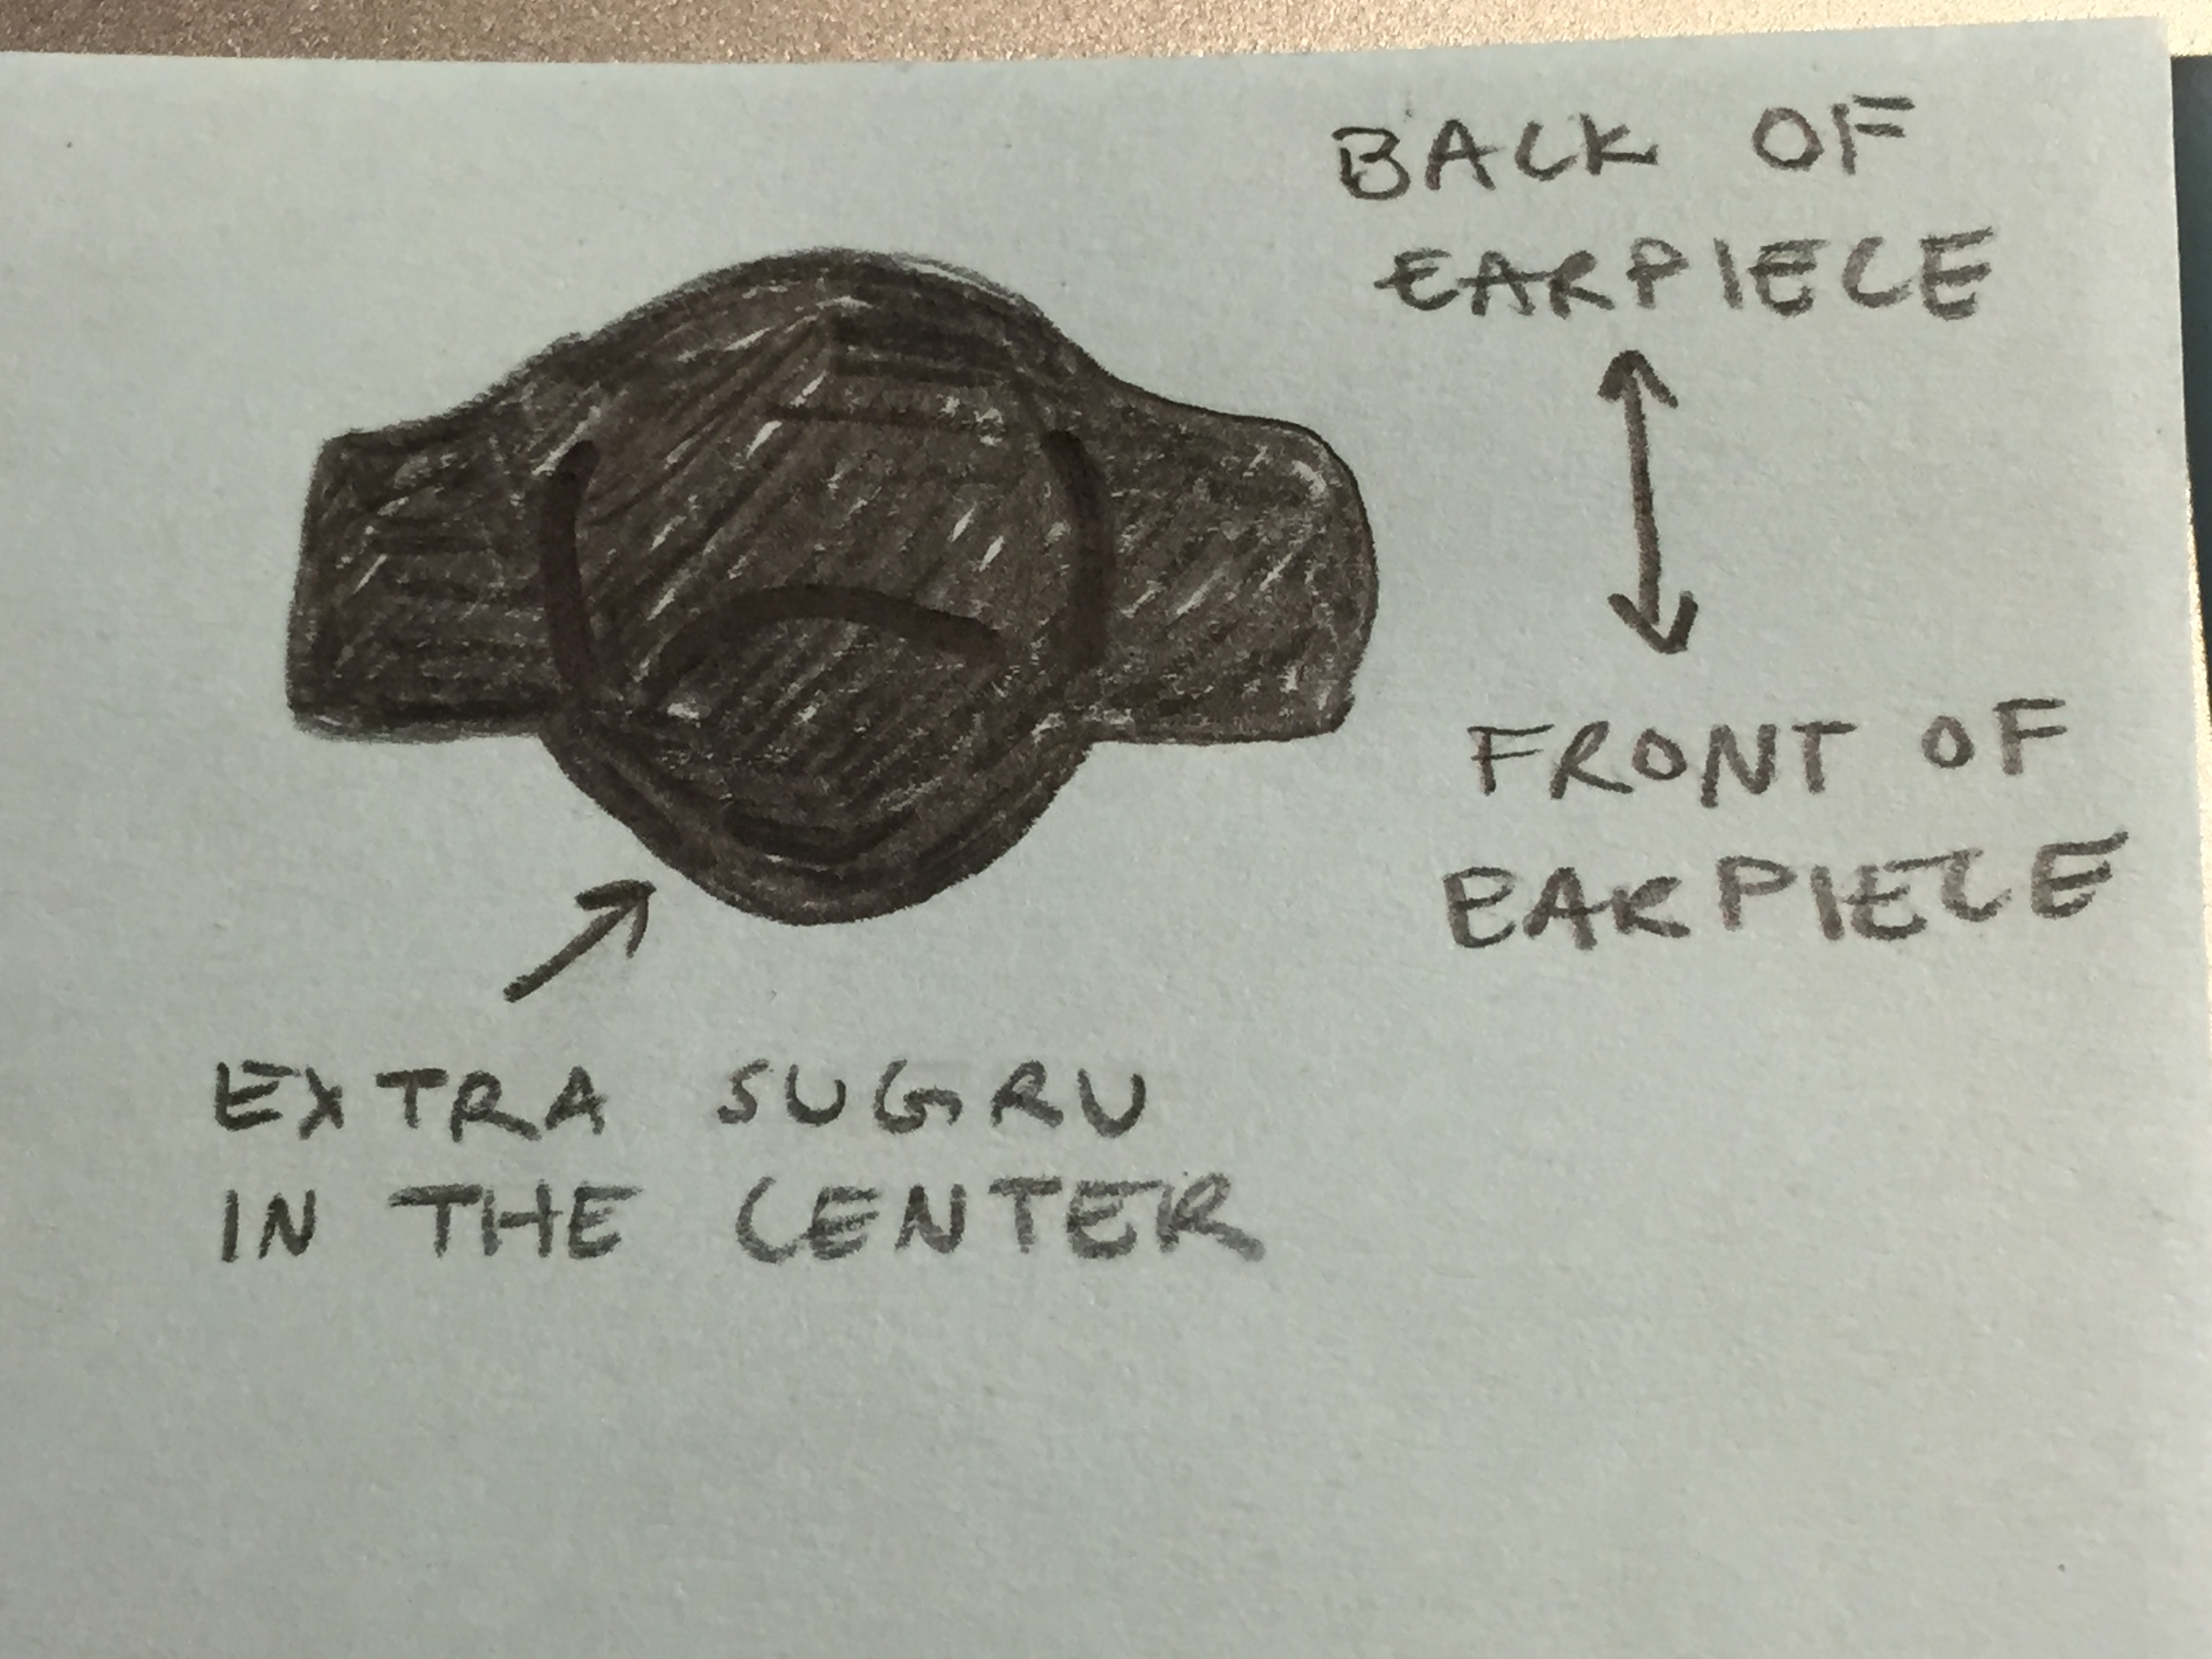 BACK OF
EARPIECE
FRONT OF
EARPIECE
EXTRA SUGRU
IN THE CENTER